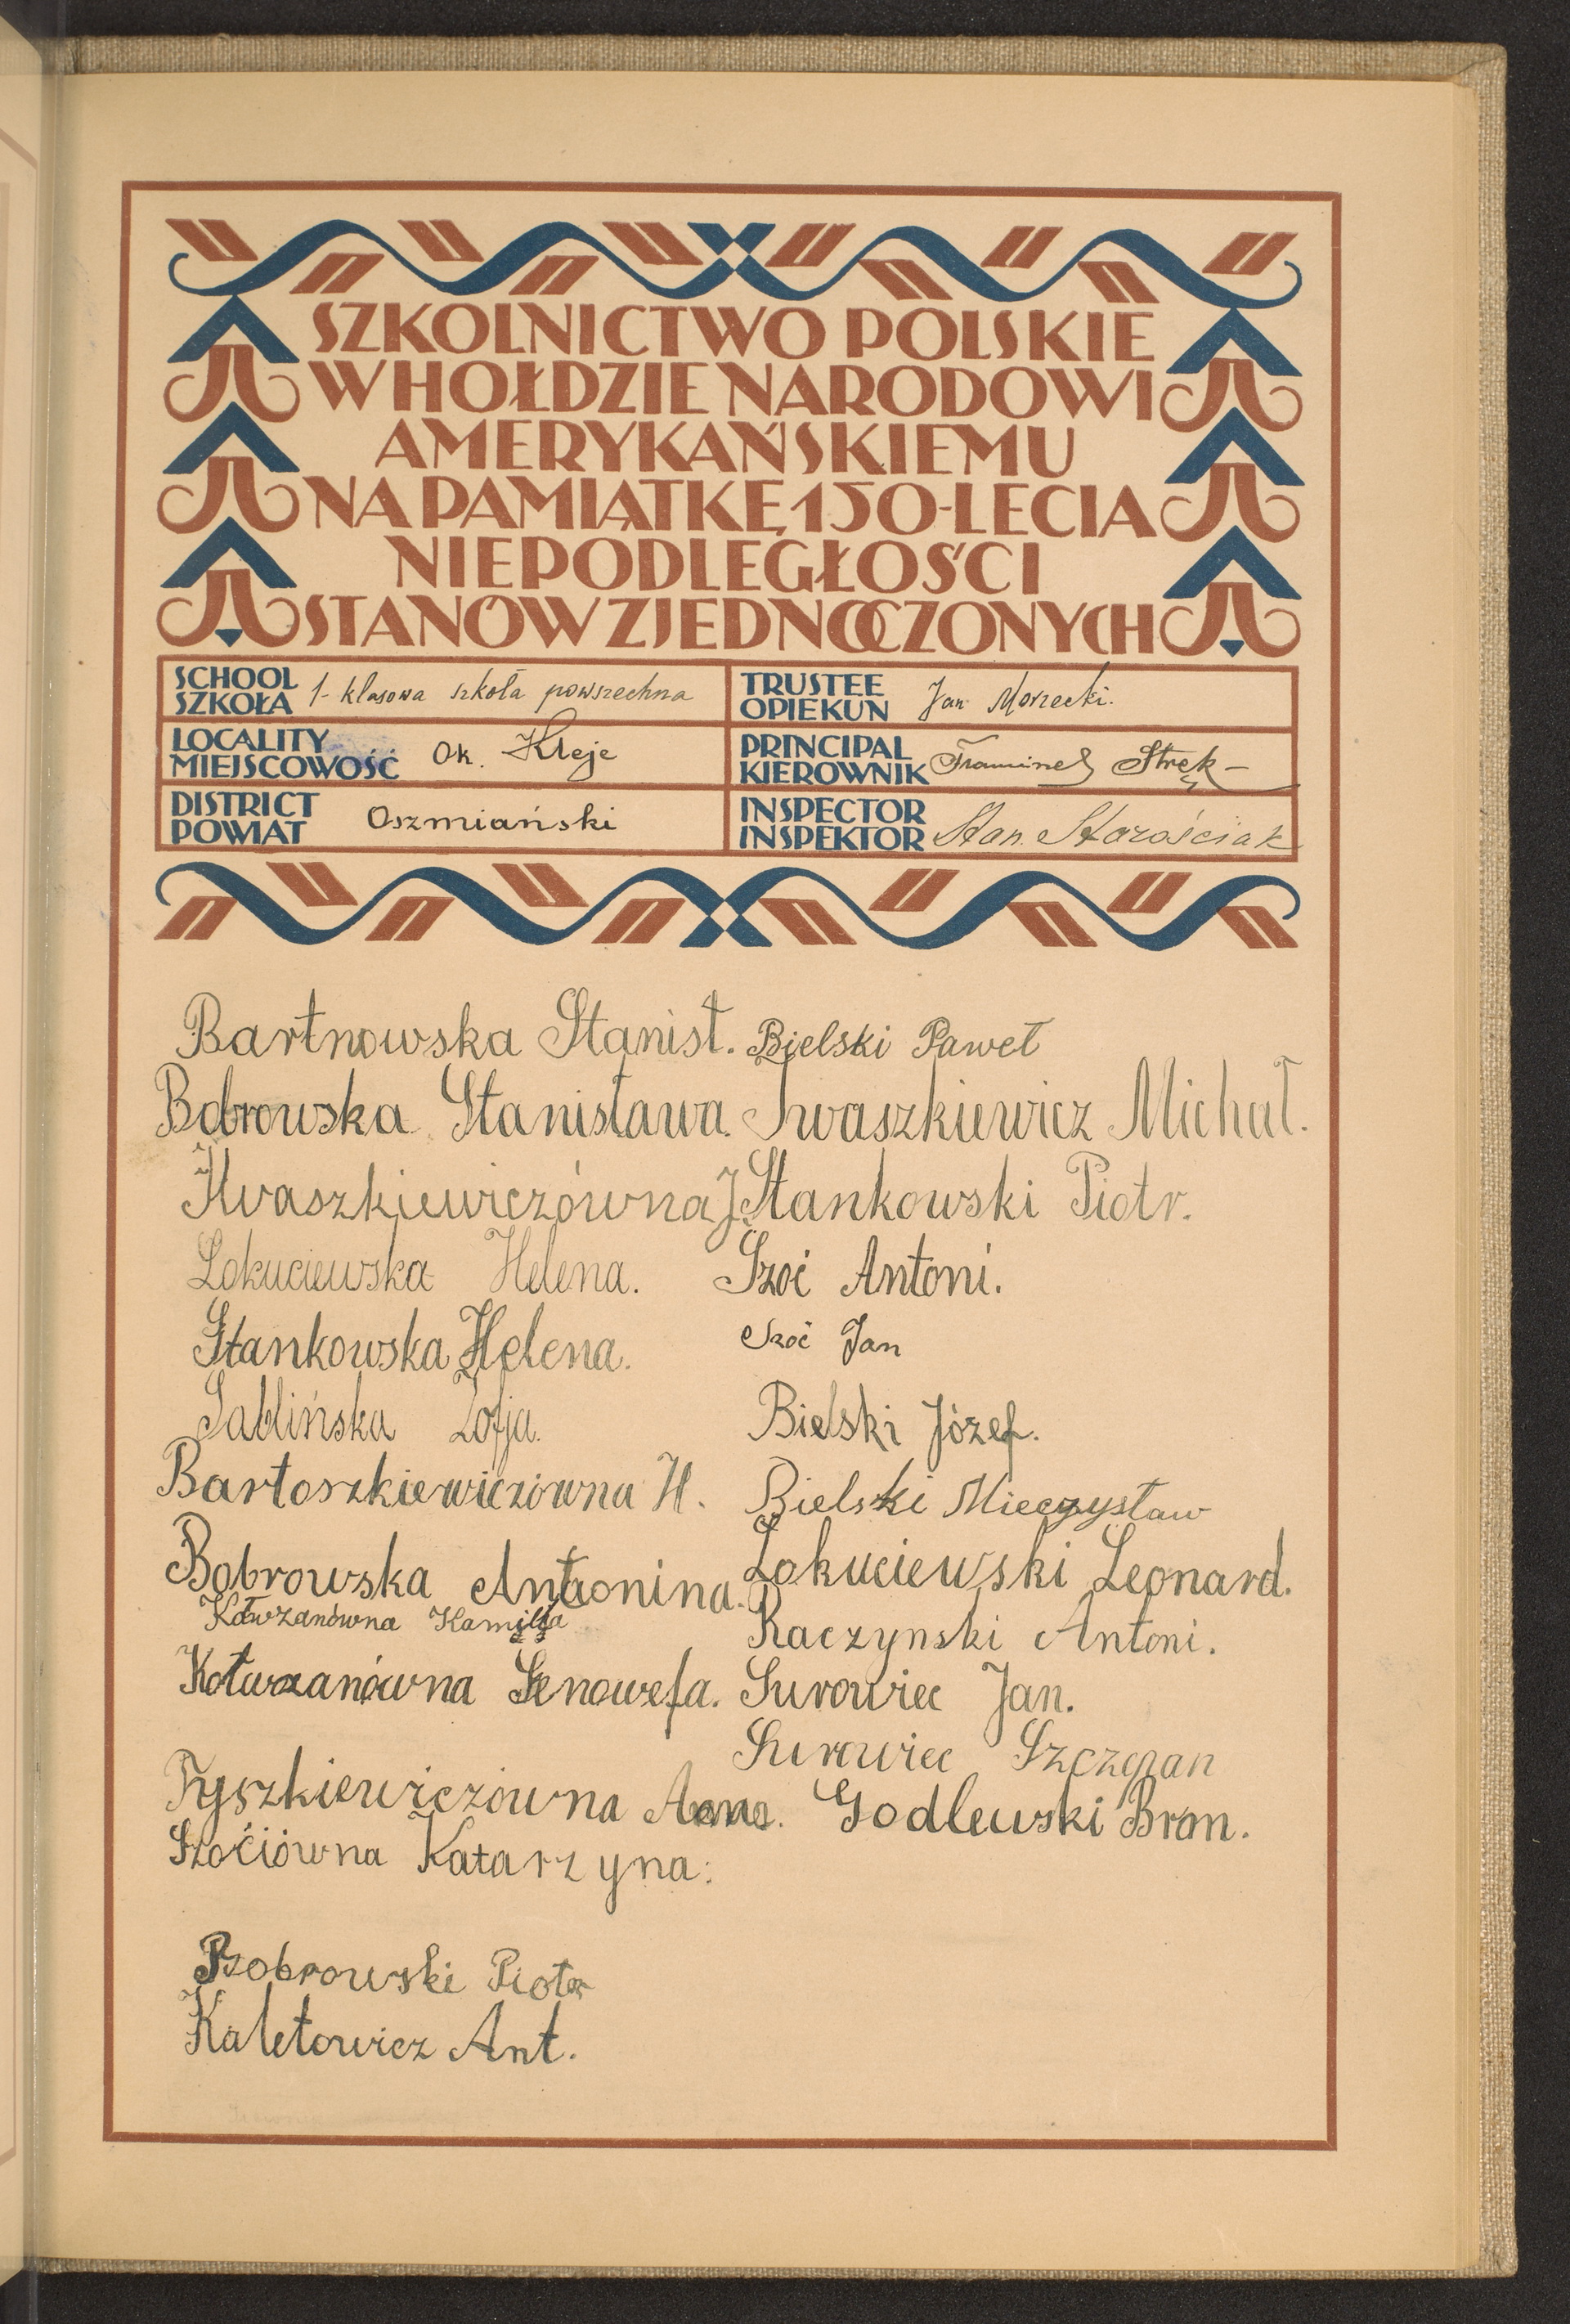 SZKOLNICTWO POLSKIE
W HOŁDZIE NARODOWI
AMERYKAŃSKIEMU
NA PAMIĄTKĘ 150-LECIA
NIEPODLEGŁOŚCI
STANÓW ZJEDNOCZONYCH
SCHOOL
SZKOŁA 1-klasowa szkoła powszechna
TRUSTEE
OPIEKUN Jan Morzecki.
LOCALITY
MIEJSCOWOŚĆ Ok. Kleje
PRINCIPAL
KIEROWNIK Stręk
DISTRICT
POWIAT Oszmiański
INSPECTOR
INSPEKTOR Stan. Starościak
Bartnowska Stanisł.
Bobrowska Stanisława.
Iwaszkiewiczówna J.
Łokuciewska Helena.
Stankowska Helena.
Jablińska Zofja.
Bartoszkiewiczówna H.
Bobrowska Antonina.
Kotwzanówna Kamilja
Kotwzanówna Genowefa.
Tyszkiewiczówna Anna.
Szociówna Katarzyna.
Bobrowski Piotr
Kaletowicz Ant.
Bielski Paweł
Iwaszkiewicz Michał.
Stankowski Piotr.
Szoć Antoni.
Szoć Jan
Bielski Józef.
Bielski Mieczysław
Łokuciewski Leonard.
Raczynski Antoni.
Surowiec Jan.
Surowiec Szczepan
Godlewski Bron.